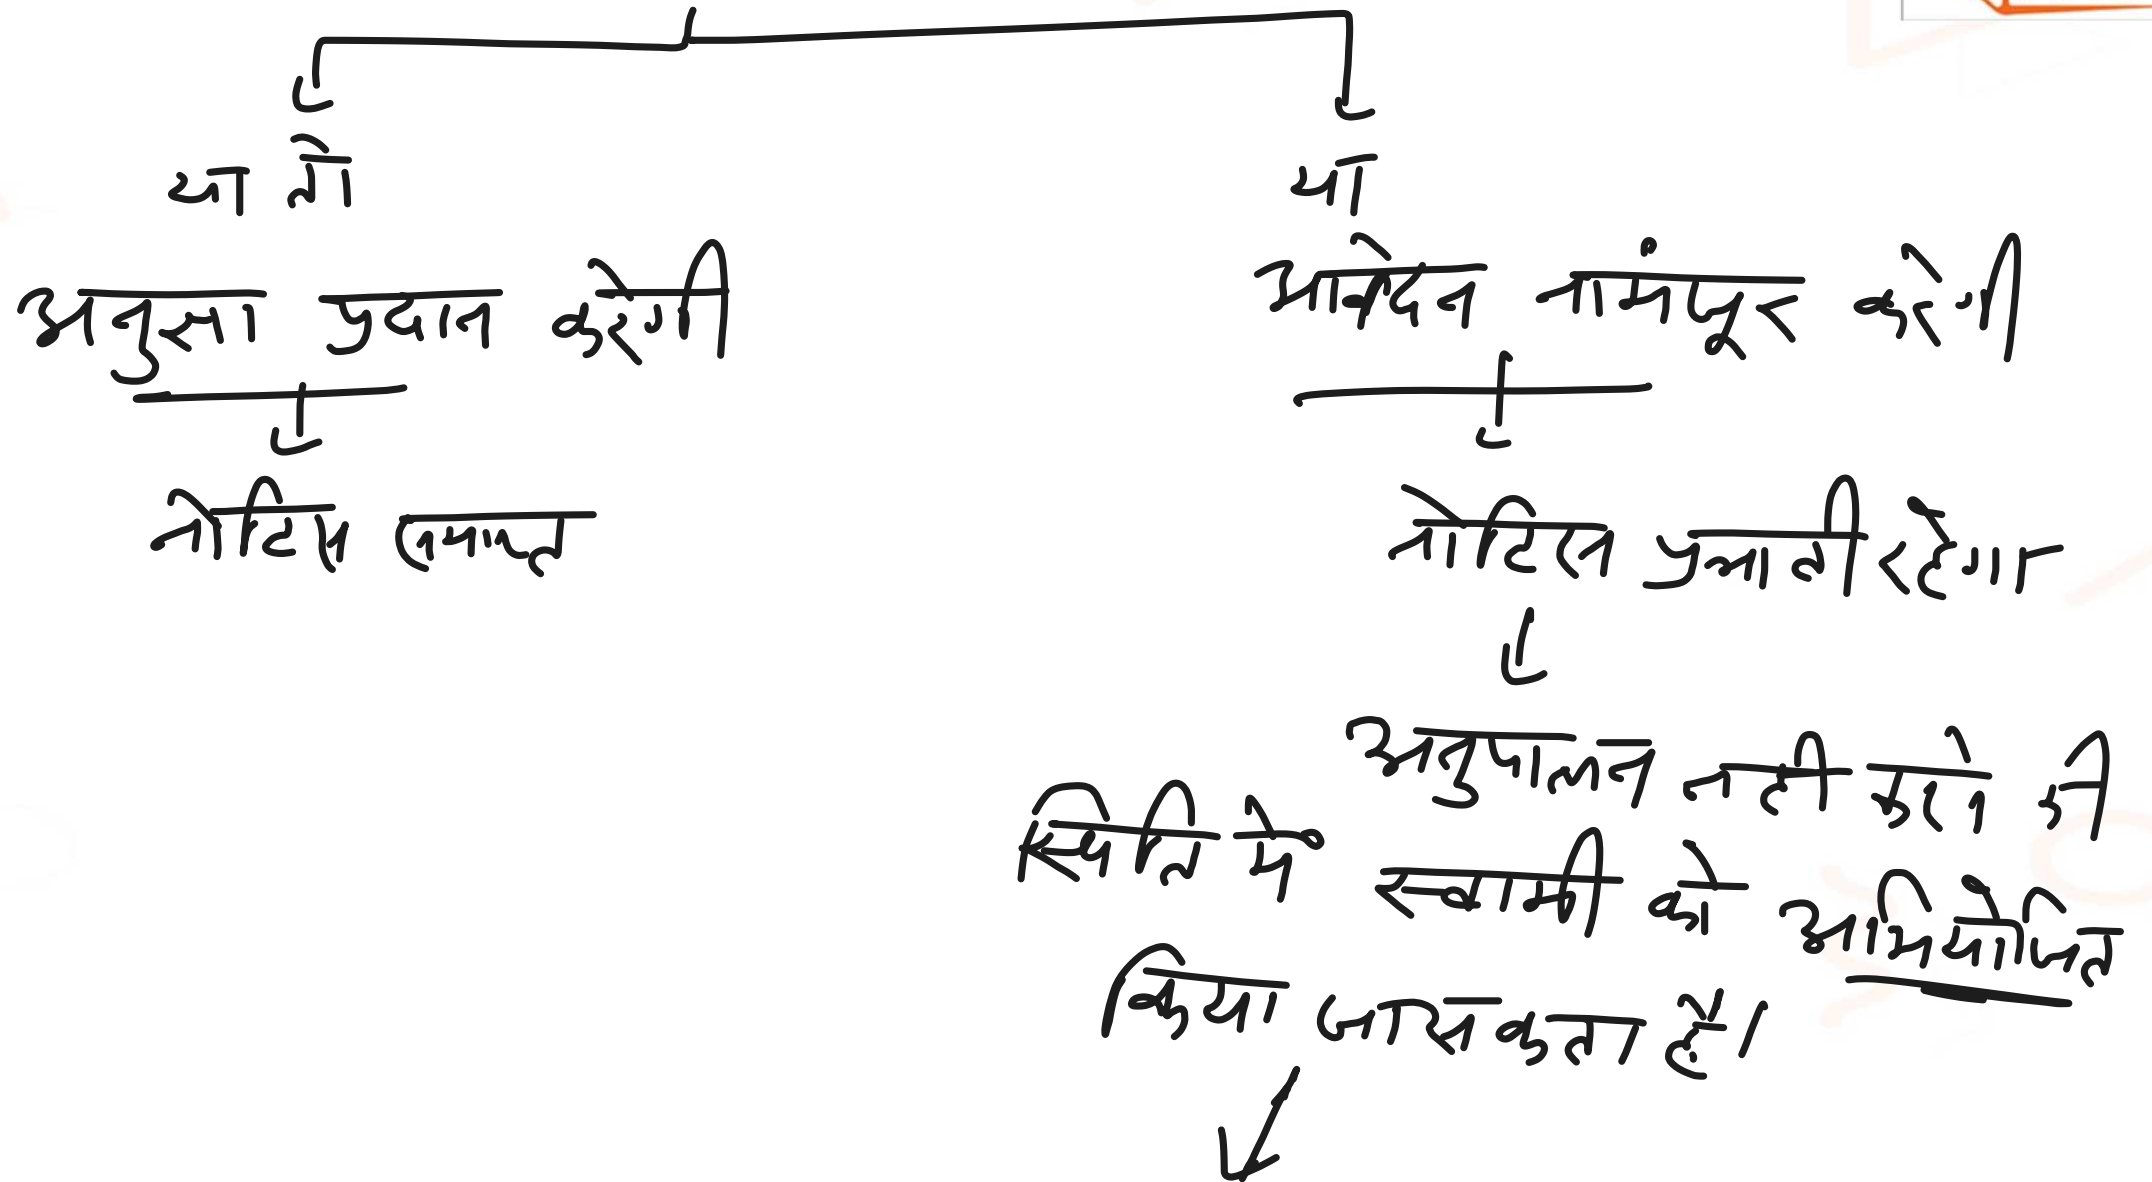 या तो
अनुज्ञा प्रदान करेगी
नोटिस समाप्त
या
आवेदन नामंजूर करेगी
नोटिस प्रभावी रहेगा
अनुपालन नही करने की
स्थिति में स्वामी को अभियोजित
किया जा सकता है।